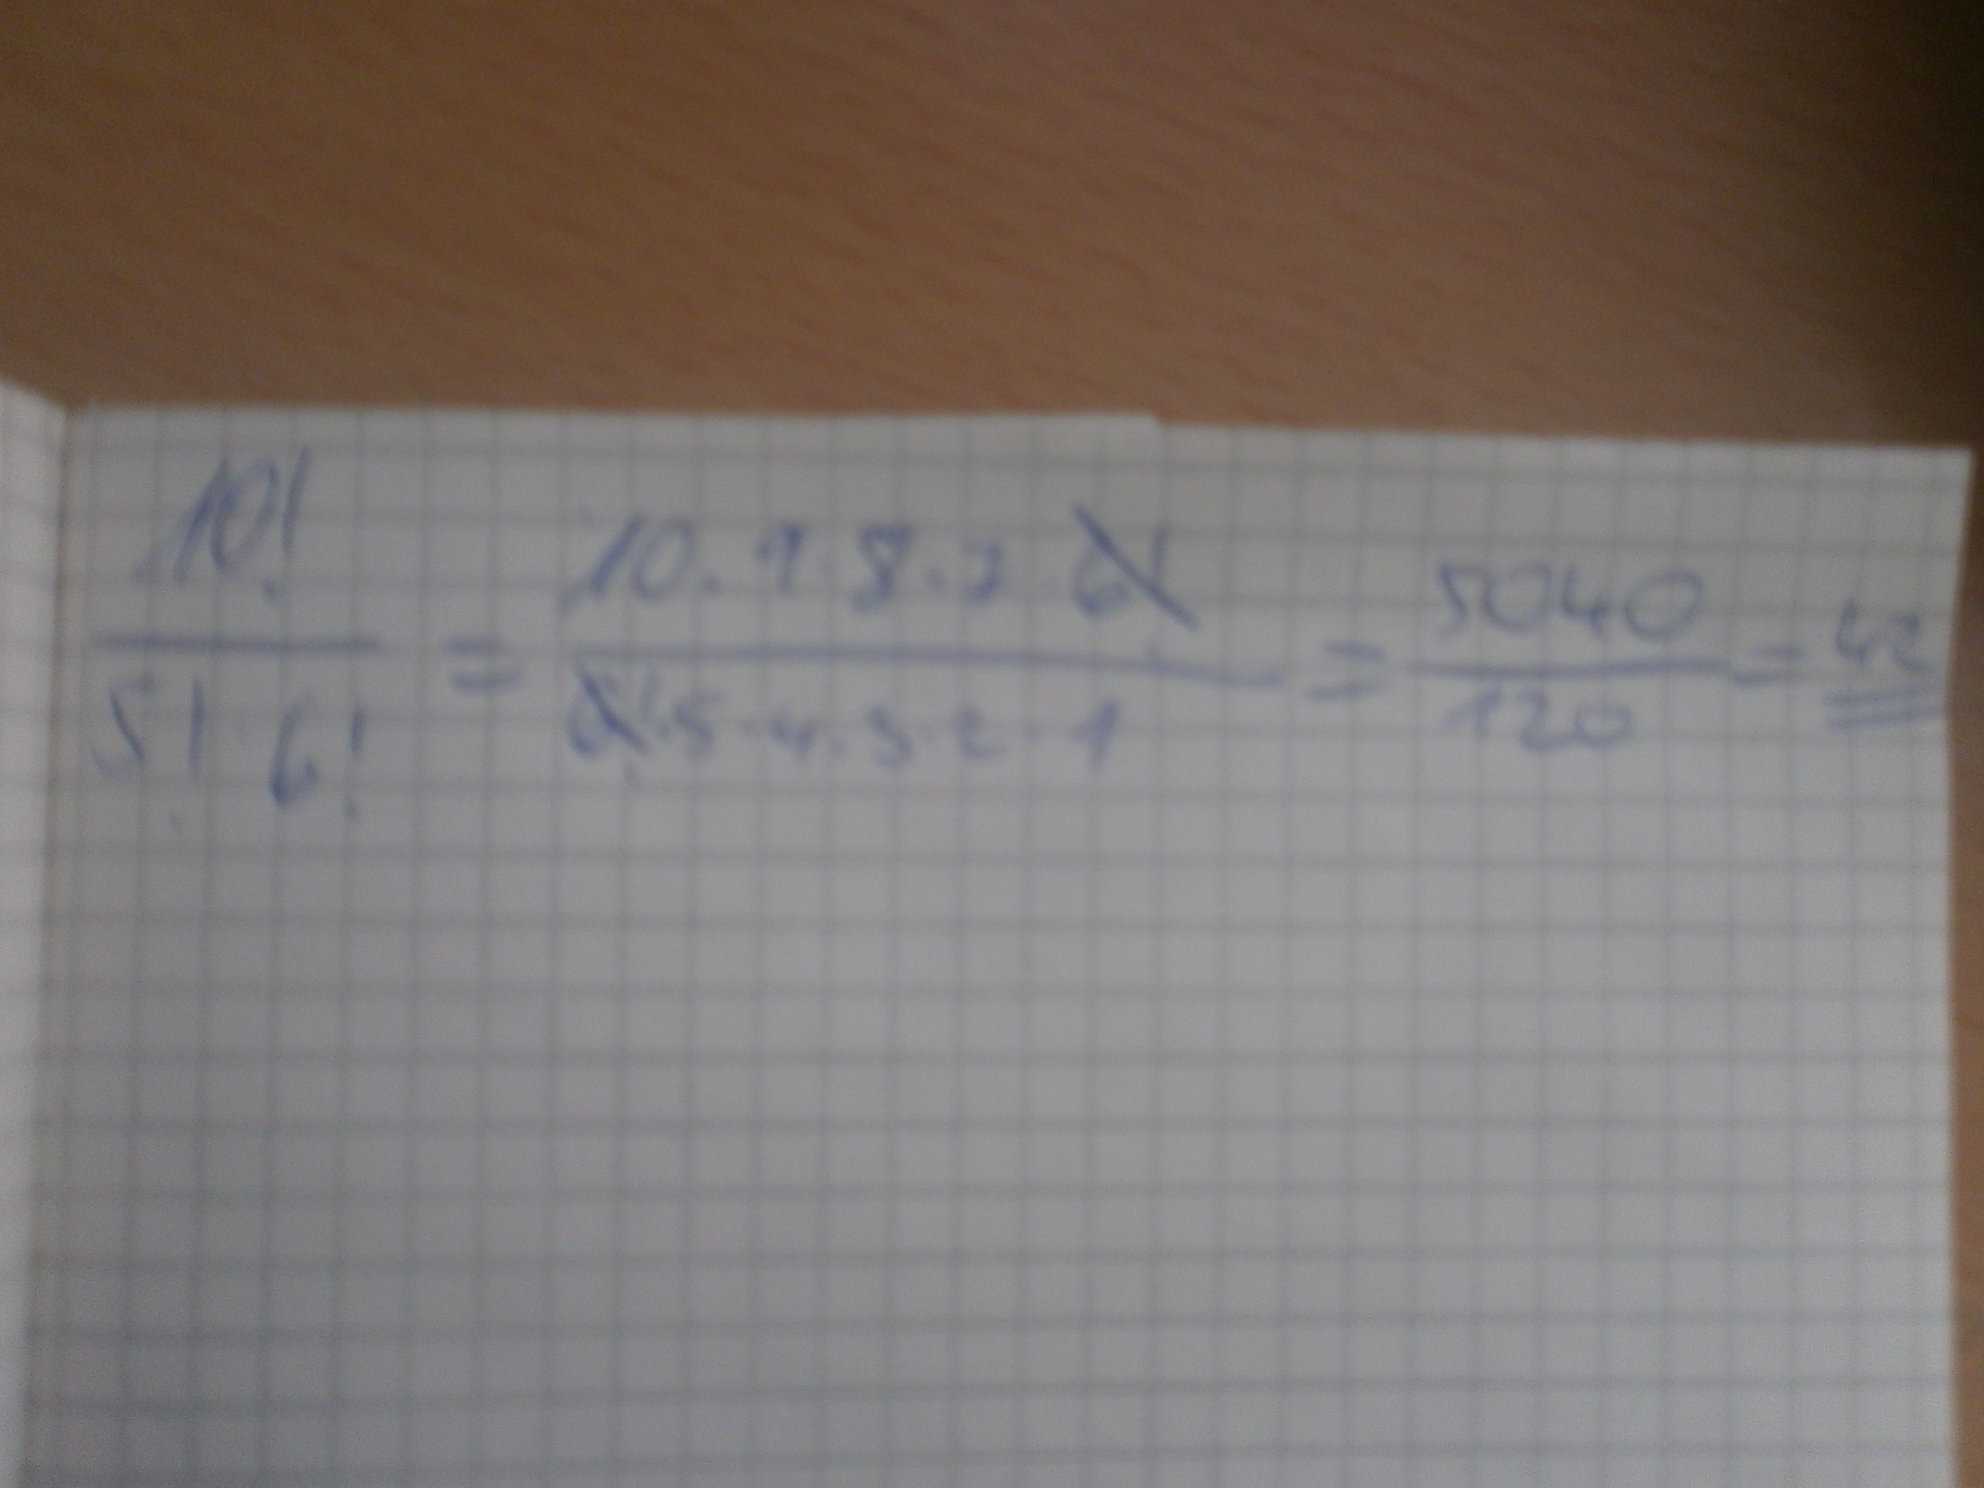 10! / 5! 6! = 10 · 9 · 8 · 7 · 6! / 6! · 5 · 4 · 3 · 2 · 1 = 5040 / 120 = 42